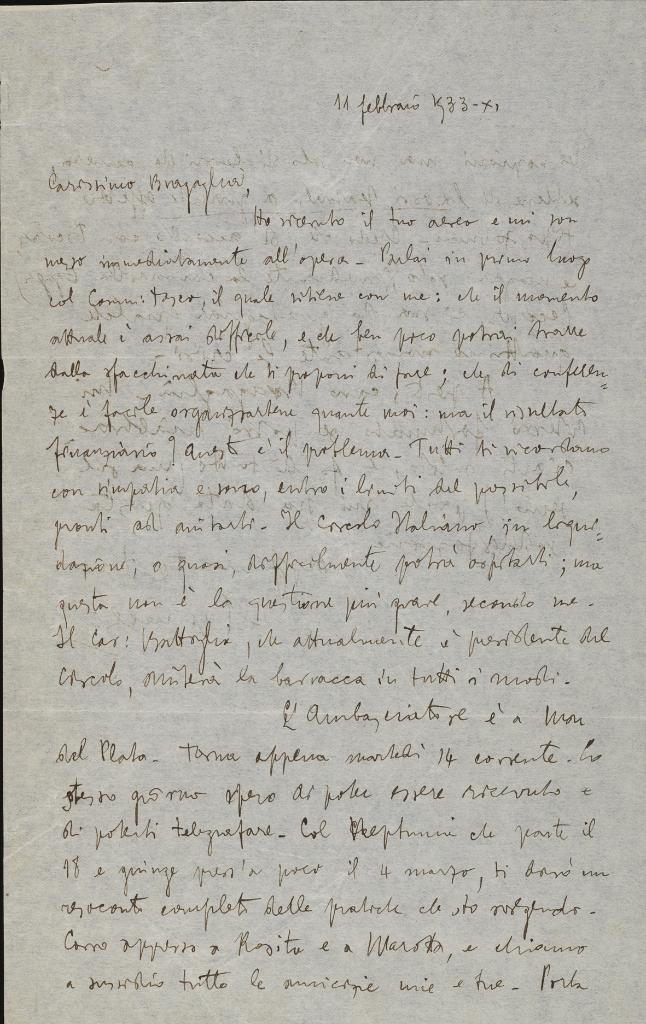 11 febbraio 1933-XI
Carissimo Bragaglia,
Ho ricevuto il tuo aereo e mi son
messo immediatamente all'opera. Parlai in primo luogo
col Comm: , il quale ritiene con me: che il momento
attuale è assai difficile, e che ben poco potrai trarre
dalla sfacchinata che ti proponi di fare; che di conferen=
ze è facile organizzartene quante vuoi: ma il risultato
finanziario? Quest'è il problema. Tutti ti ricordano
con simpatia e sono, entro i limiti del possibile,
pronti ad aiutarti. Il Circolo Italiano, in liqui=
dazione, o quasi, difficilmente potrà ospitarti; ma
questa non è la questione più grave, secondo me.
Il Cav: Battaglia, che attualmente è presidente del
Circolo, aiuterà la baracca in tutti i modi.
L'Ambasciatore è a Mar
del Plata. Torna appena martedì 14 corrente. Lo
stesso giorno spero di poter essere ricevuto e
di poterti telegrafare. Col Neptunia che parte il
18 e giunge press'a poco il 4 marzo, ti darò un
resoconto completo delle pratiche che sto svolgendo.
Corro appresso a Rosita e a Marotta, e chiamo
a sussidio tutte le amicizie mie e tue.